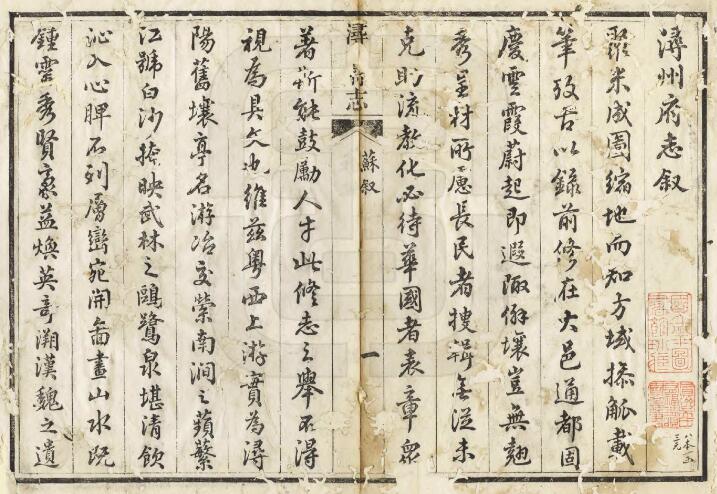 潯州府志叙
聚米成圖縮地而知方域摻觚載
筆攷古以錄前修在大邑通都固
慶雲霞蔚起即遐陬僻壤豈無翹
秀呈材所慮長民者搜緝無從未
克則流教化必待華國者表章衆
潯 志
蘇叙
一
著斯能鼓勵人才此修志之舉不得
視為具文也維兹粤西上游實為潯
陽舊壤亭名游冶交縈南澗之蘋蘩
江號白沙掩映武林之鷗鷺泉堪清飲
沁入心脾石列層巒宛開畵畫山水既
鍾靈秀賢豪益煥英奇溯漢魏之遺